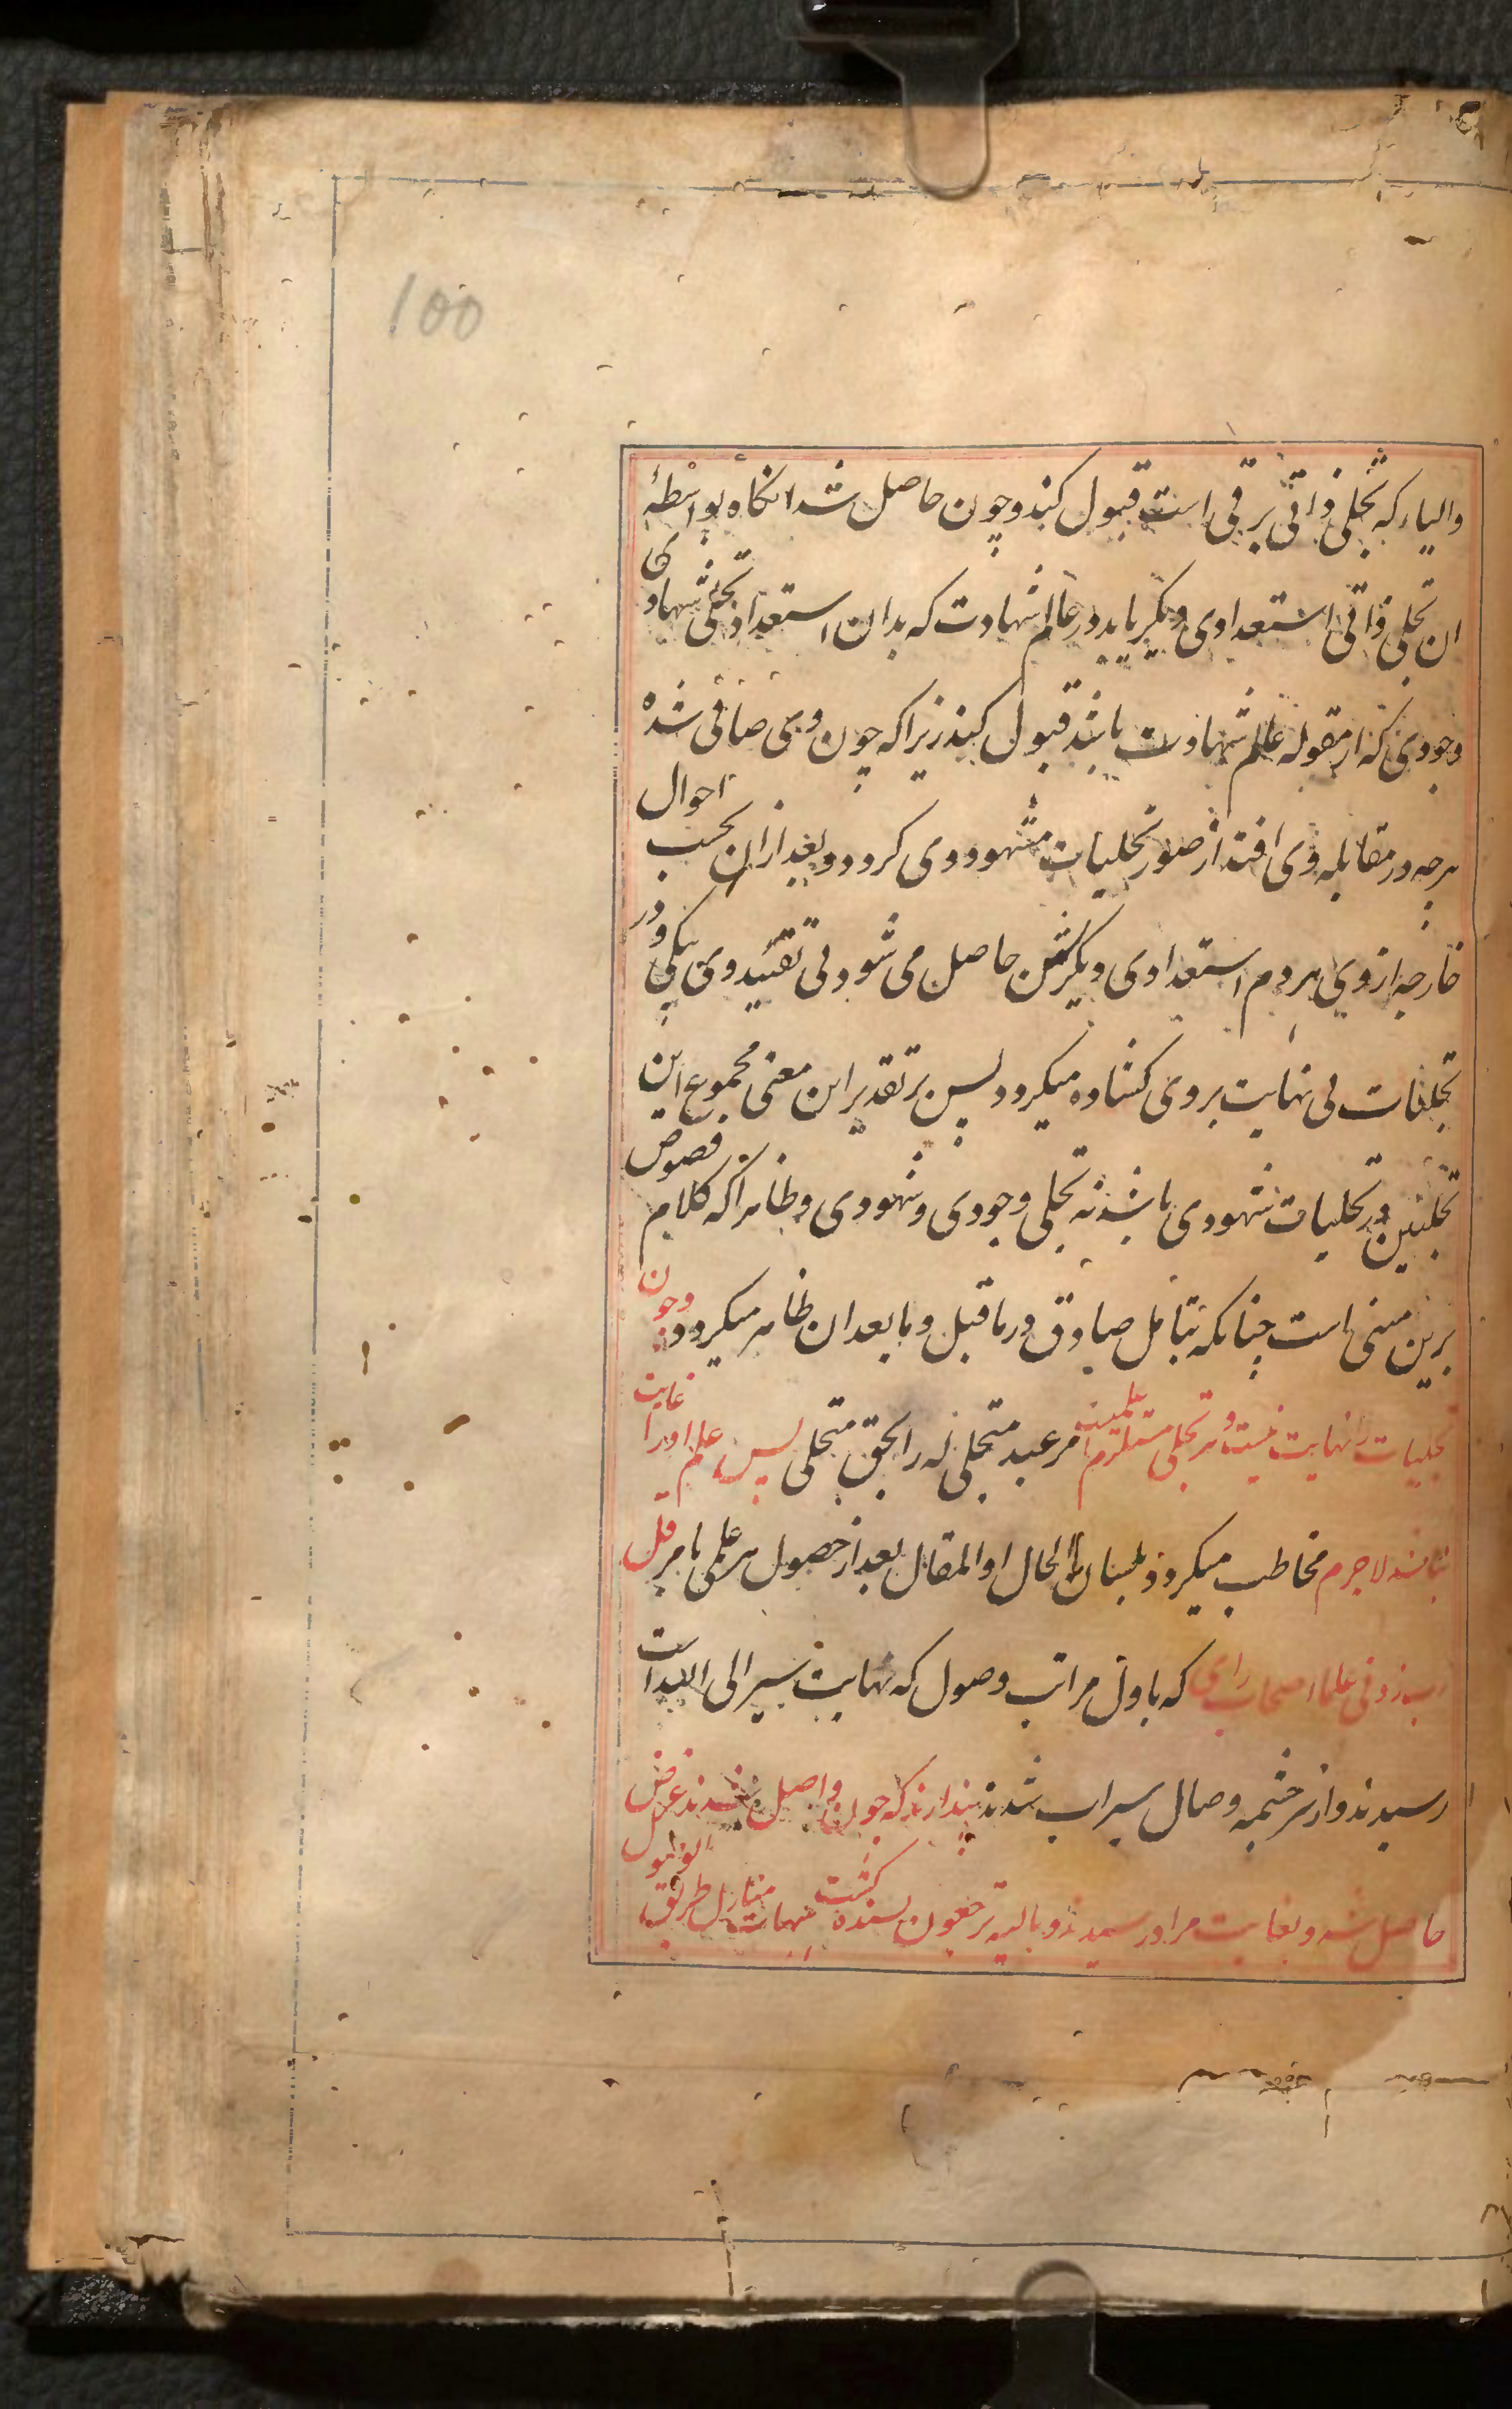 100
والیاء که تجلی ذاتی برقی است قبول کند و چون حاصل شد انکاه بواسطهٔ
ان تجلی ذاتی استعدادی دیکر یابد در عالم شهادت که بدان استعداد تجلی شهادی
وجودی که از مقوله عالم شهادت باشد قبول کند زیرا که چون وی صافی شده
هرچه در مقابله وی افتد از صور تجلیات مشهود وی کردد و بعد از ان بحسب احوال
خارجه از وی هر دم استعدادی دیکرش حاصل می شود بی تقید وی بیکی و در
تجلیات بی نهایت بروی کشاده میکردد پس بر تقدیر این معنی مجموع این
تجلیین در تجلیات شهودی باشد نه تجلی وجودی و شهودی و ظاهرا که کلام فصوص
برین مبنی است چنانکه بتامل صادق در ما قبل و ما بعد ان ظاهر میکردد وچون
تجلیات را نهایت نیست و هر تجلی مستلزم علمیست مر عبد متجلی له را بحق متجلی پس علم او را غایت
نباشد لاجرم مخاطب میکردد بلسان الحال او المقال بعد از حصول هر علمی بامر قل
رب زدنی علما اصحاب رای که باول مراتب وصول که نهایت سیر الی الله است
رسیدند و از سرچشمه وصال سیراب شدند پندارند که چون واصل شدند غرض
حاصل شد و بغایت مراد رسیدند و بالیه ترجعون بسنده کشت هیهات منازل طریق الوصول